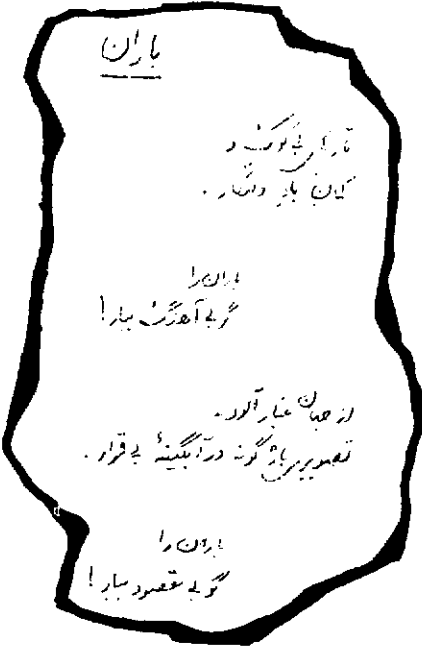 باران
تارهای بی‌کوک و
کمان بادِ ولنگار.
باران را
گو بی‌آهنگ ببار!
از جهان غبارآلود.
تصویری باژگونه در آبگینهٔ بی‌قرار.
باران را
گو بی‌مقصود ببار!